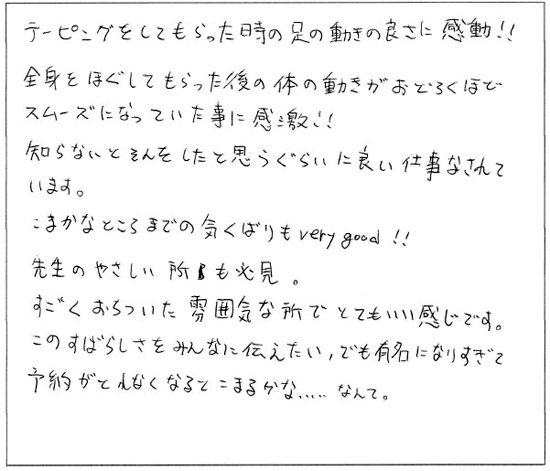 テーピングをしてもらった時の足の動きの良さに感動!!
全身をほぐしてもらった後の体の動きがおどろくほど
スムーズになっていた事に感激!!
知らないとそんをしたと思うぐらいに良い仕事なされて
います。
こまかなところまでの気くばりもvery good!!
先生のやさしい所も必見。
すごくおちついた雰囲気な所でとてもいい感じです。
このすばらしさをみんなに伝えたい,でも有名になりすぎて
予約がとれなくなるとこまるかな.....なんて。